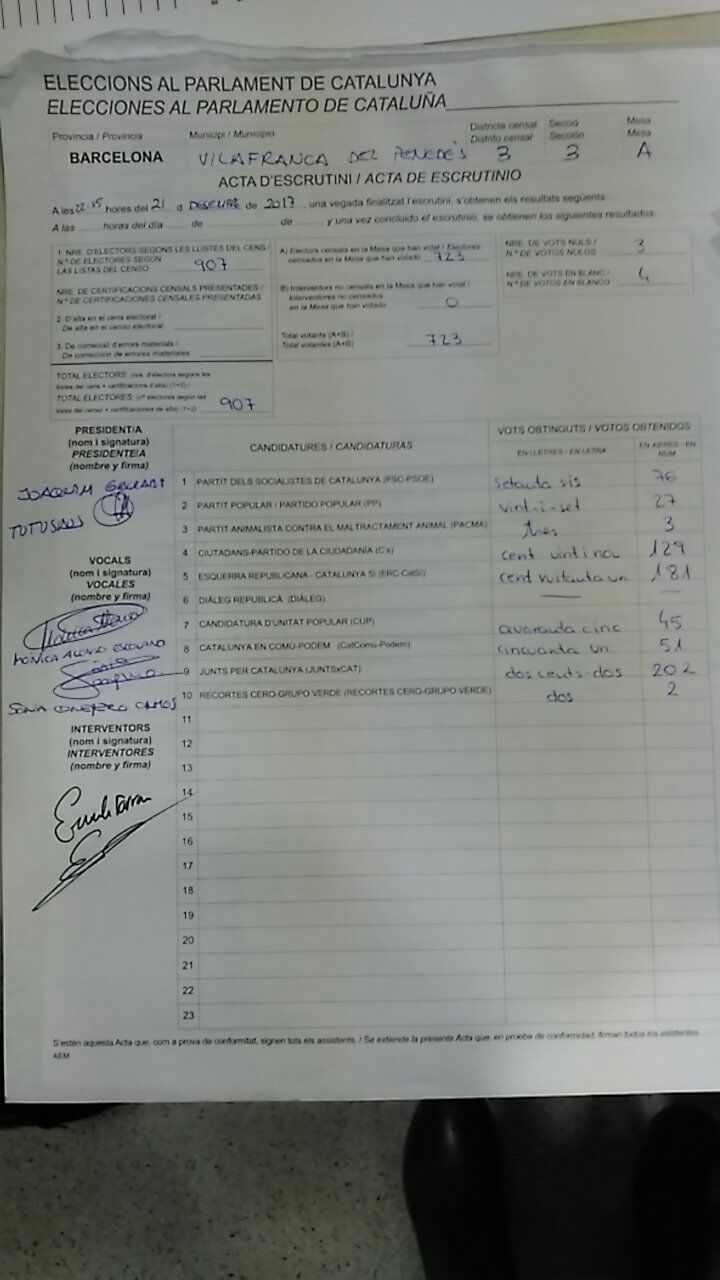 ELECCIONS AL PARLAMENT DE CATALUNYA
ELECCIONES AL PARLAMENTO DE CATALUÑA
Provincia / Provincia Municipi / Municipio Districte censal Secció Mesa
Distrito censal Sección Mesa
BARCELONA VILAFRANCA DEL PENEDÈS 3 3 A
ACTA D'ESCRUTINI / ACTA DE ESCRUTINIO
A les 22 15 hores del 21 d DESEMBRE de 2017, una vegada finalitzat l'escrutini, s'obtenen els resultats següents:
A las hores del día de de , y una vez concluido el escrutinio, se obtienen los siguientes resultados:
1. NRE. D'ELECTORS SEGONS LES LLISTES DEL CENS /
N.º DE ELECTORES SEGÚN
LAS LISTAS DEL CENSO 907
NRE. DE CERTIFICACIONS CENSALS PRESENTADES /
N.º DE CERTIFICACIONES CENSALES PRESENTADAS
2. D'alta en el cens electoral /
De alta en el censo electoral:
3. De correcció d'errors materials /
De corrección de errores materiales:
TOTAL ELECTORS: (nre. d'electors segons les
llistes del cens + certificacions d'alta) (1+2) /
TOTAL ELECTORES: (nº electores según las
listas del censo + certificaciones de alta) (1+2) 907
A) Electors censats en la Mesa que han votat / Electores
censados en la Mesa que han votado 723
B) Interventors no censats en la Mesa que han votat /
Interventores no censados
en la Mesa que han votado 0
Total votants (A+B) /
Total votantes (A+B) 723
NRE. DE VOTS NULS /
N.º DE VOTOS NULOS 3
NRE. DE VOTS EN BLANC /
N.º DE VOTOS EN BLANCO 4
PRESIDENT/A
(nom i signatura)
PRESIDENTE/A
(nombre y firma)
JOAQUIM
TOTUSAUS
VOCALS
(nom i signatura)
VOCALES
(nombre y firma)
MONICA ALONSO
SONIA CONEJERO
INTERVENTORS
(nom i signatura)
INTERVENTORES
(nombre y firma)
CANDIDATURES / CANDIDATURAS VOTS OBTINGUTS / VOTOS OBTENIDOS
EN LLETRES / EN LETRA EN XIFRES / EN NÚM
1 PARTIT DELS SOCIALISTES DE CATALUNYA (PSC-PSOE) Setanta sis 76
2 PARTIT POPULAR / PARTIDO POPULAR (PP) vint-i-set 27
3 PARTIT ANIMALISTA CONTRA EL MALTRACTAMENT ANIMAL (PACMA) tres 3
4 CIUTADANS-PARTIDO DE LA CIUDADANÍA (C's) cent vintinou 129
5 ESQUERRA REPUBLICANA - CATALUNYA SÍ (ERC-CatSí) cent vuitanta un 181
6 DIÀLEG REPUBLICÀ (DIÀLEG) — —
7 CANDIDATURA D'UNITAT POPULAR (CUP) quaranta cinc 45
8 CATALUNYA EN COMÚ-PODEM (CatComú-Podem) cincuanta un 51
9 JUNTS PER CATALUNYA (JUNTSxCAT) dos cents dos 202
10 RECORTES CERO-GRUPO VERDE (RECORTES CERO-GRUPO VERDE) dos 2
11
12
13
14
15
16
17
18
19
20
21
22
23
S'estén aquesta Acta que, com a prova de conformitat, signen tots els assistents. / Se extiende la presente Acta que, en prueba de conformidad, firman todos los asistentes.
AEM